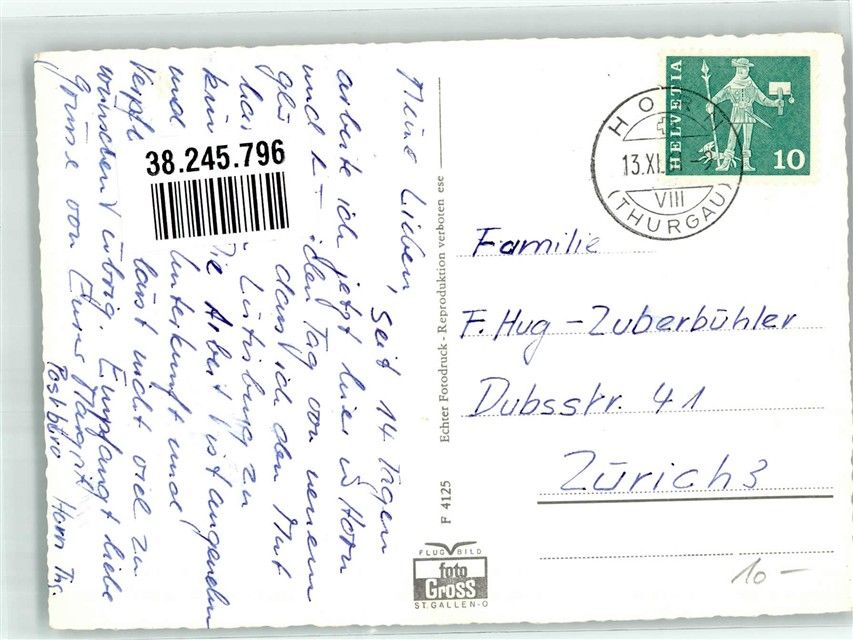 Meine Lieben,
Seit 14 Tagen
arbeite ich jetzt hier in Horn
und Tag von neuem
dass ich den Mut
Lütisburg zu
Die Arbeit ist angenehm
und Unterkunft und
Verpfl lässt nicht viel zu
wünschen übrig. Empfangt liebe
Grüsse von Eurer Margrit
Postbüro Horn Thg.
38.245.796
Echter Fotodruck - Reproduktion verboten ese
F 4125
FLUG BILD
foto
Gross
ST. GALLEN-O
HELVETIA
10
HORN
13.XI.
VIII
(THURGAU)
Familie
F. Hug - Zuberbühler
Dubsstr. 41
Zürich 3
10 —